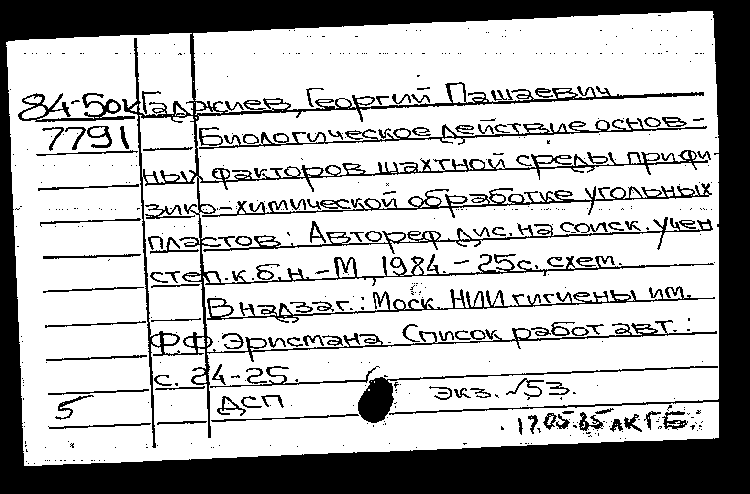 84-5ок Гаджиев, Георгий Пашаевич.
7791 Биологическое действие основ-
ных факторов шахтной среды при фи-
зико-химической обработке угольных
пластов: Автореф. дис. на соиск. учен.
степ. к.б.н. - М., 1984. - 25 с., схем.
В надзаг.: Моск. НИИ гигиены им.
Ф.Ф. Эрисмана. Список работ авт.:
с. 24-25.
5 ДСП экз. №53.
17.05.85 лк ГБ.